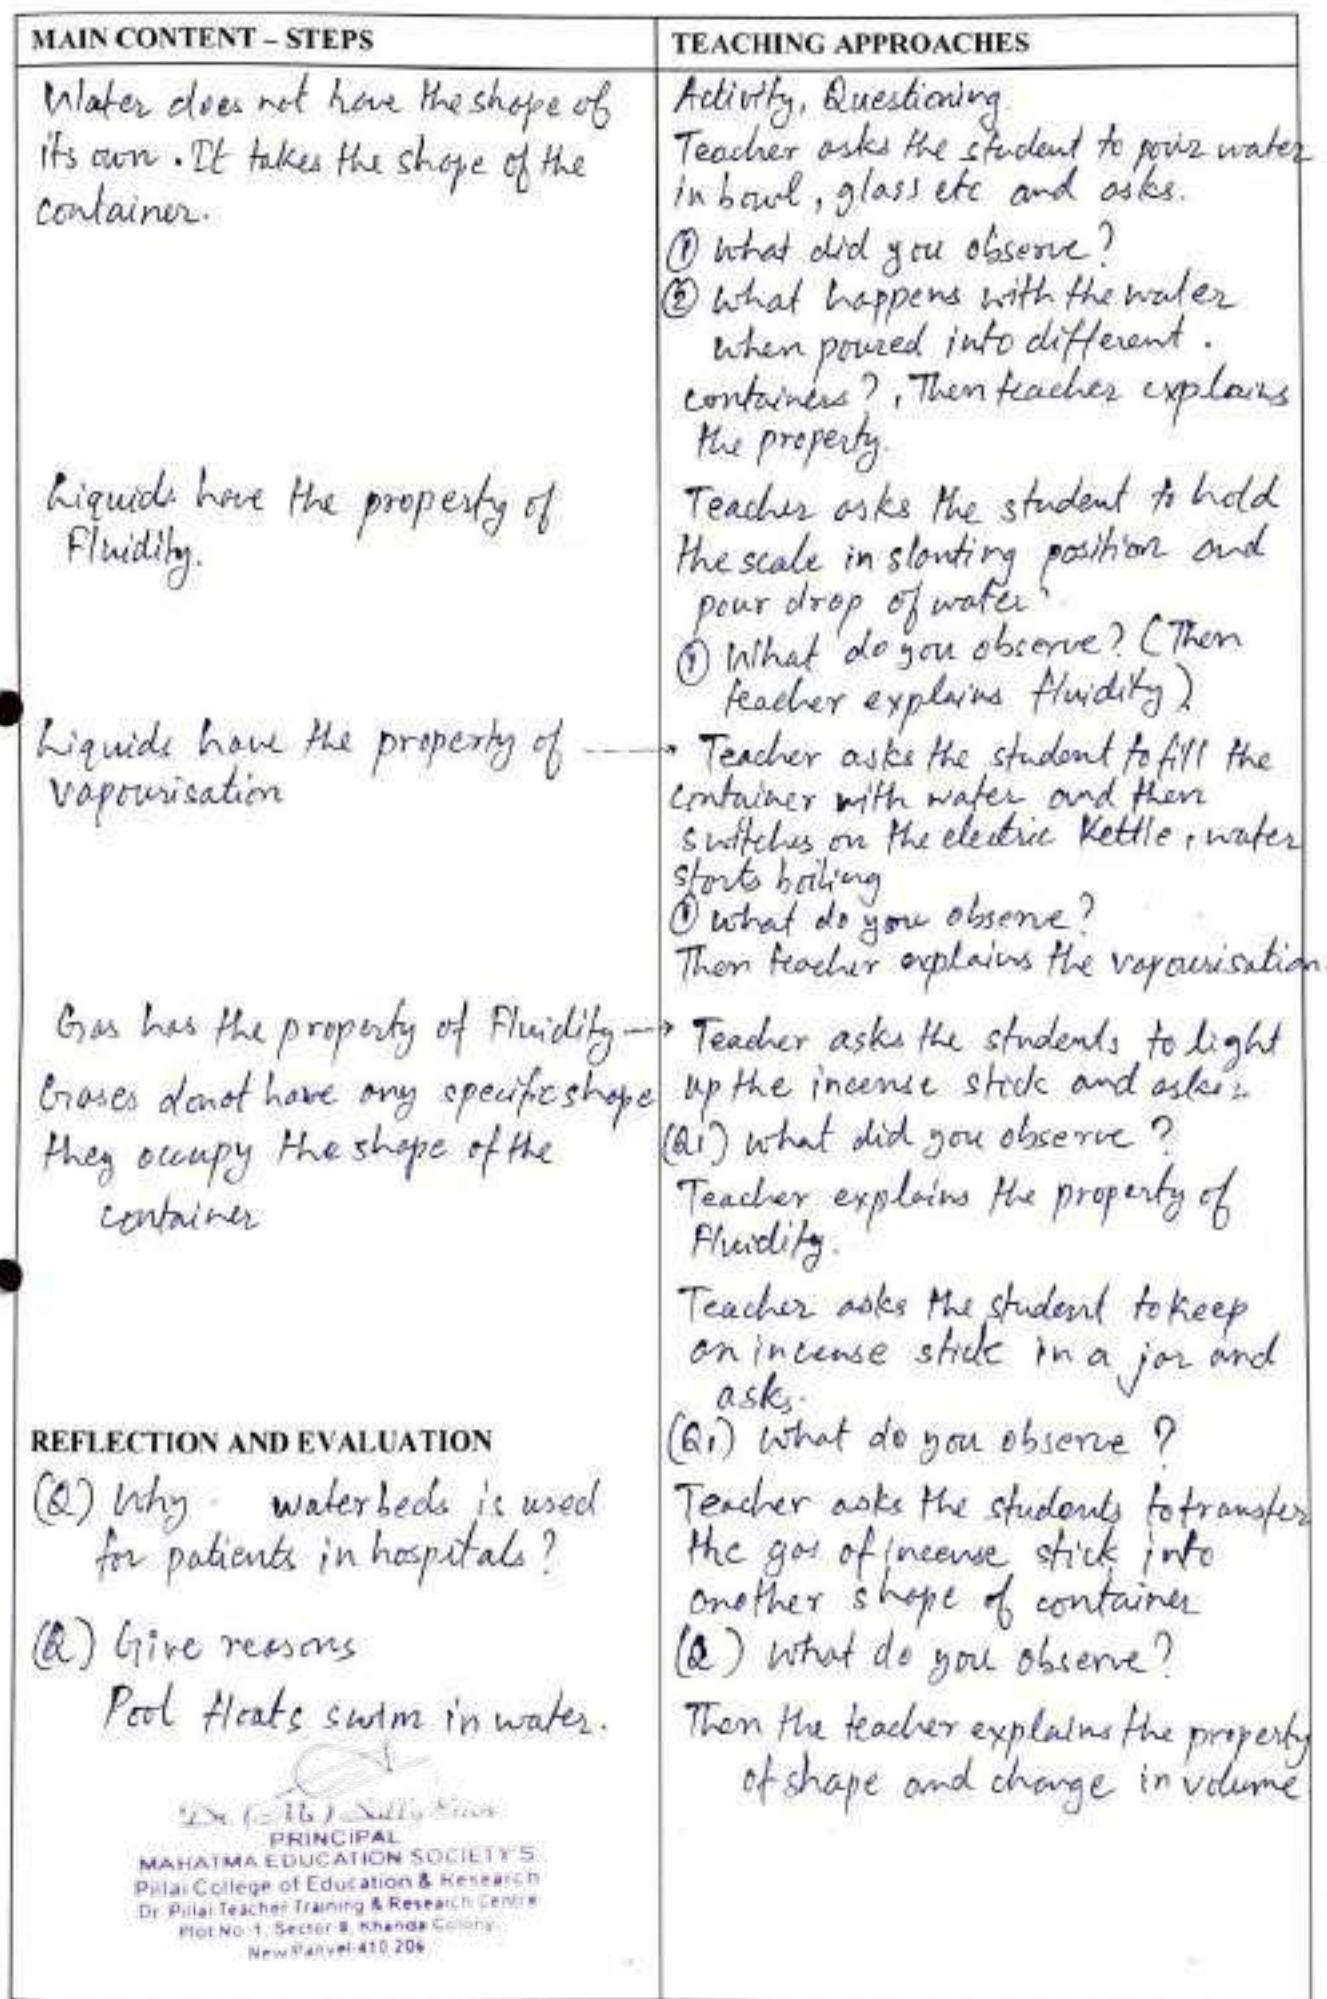 MAIN CONTENT – STEPS
Water does not have the shape of
its own. It takes the shape of the
container.
Liquids have the property of
Fluidity.
Liquids have the property of
vapourisation
Gas has the property of Fluidity
Gases donot have any specific shape
they occupy the shape of the
container
REFLECTION AND EVALUATION
(Q) Why waterbeds is used
for patients in hospitals?
(Q) Give reasons
Pool floats swim in water.
PRINCIPAL
MAHATMA EDUCATION SOCIETY'S
Pillai College of Education & Research
Dr. Pillai Teacher Training & Research Centre
Plot No. 1, Sector 8, Khanda Colony
New Panvel-410 206
TEACHING APPROACHES
Activity, Questioning
Teacher asks the student to pour water
in bowl, glass etc and asks.
① What did you observe?
② What happens with the water
when poured into different.
containers?, Then teacher explains
the property.
Teacher asks the student to hold
the scale in slanting position and
pour drop of water.
① What do you observe? (Then
teacher explains fluidity)
Teacher asks the student to fill the
container with water and then
switches on the electric Kettle, water
starts boiling
① What do you observe?
Then teacher explains the vapourisation.
Teacher asks the students to light
up the incense stick and asks
(Q1) What did you observe?
Teacher explains the property of
Fluidity.
Teacher asks the student to keep
an incense stick in a jar and
asks.
(Q1) What do you observe?
Teacher asks the students to transfer
the gas of incense stick into
another shape of container
(Q) What do you observe?
Then the teacher explains the property
of shape and change in volume